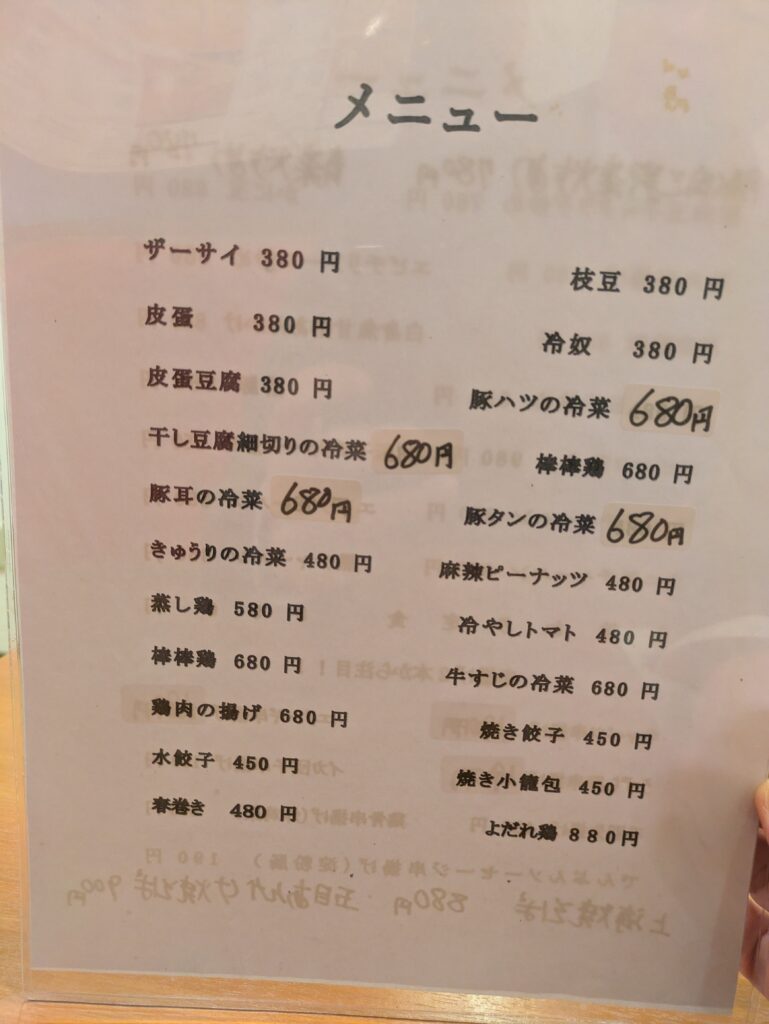 メニュー
ザーサイ 380 円
皮蛋 380 円
皮蛋豆腐 380 円
干し豆腐細切りの冷菜 680円
豚耳の冷菜 680円
きゅうりの冷菜 480 円
蒸し鶏 580 円
棒棒鶏 680 円
鶏肉の揚げ 680 円
水餃子 450 円
春巻き 480 円
枝豆 380 円
冷奴 380 円
豚ハツの冷菜 680円
棒棒鶏 680 円
豚タンの冷菜 680円
麻辣ピーナッツ 480 円
冷やしトマト 480 円
牛すじの冷菜 680 円
焼き餃子 450 円
焼き小籠包 450 円
よだれ鶏 880円